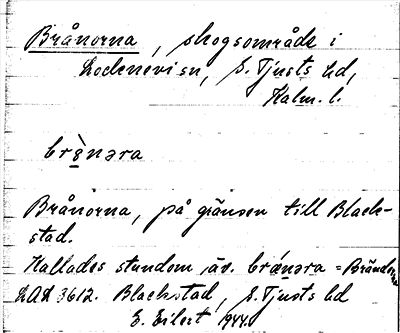 Brånorna, skogsområde i
Lockneviså, S. Tjusts hd,
Kalm. l.
brånəra
Brånorna, på gränsen till Black-
stad.
Kallades stundom äv. branəra = Brändorna
LAL 3612. Blackstad, S. Tjusts hd
E. Eilert 1944.